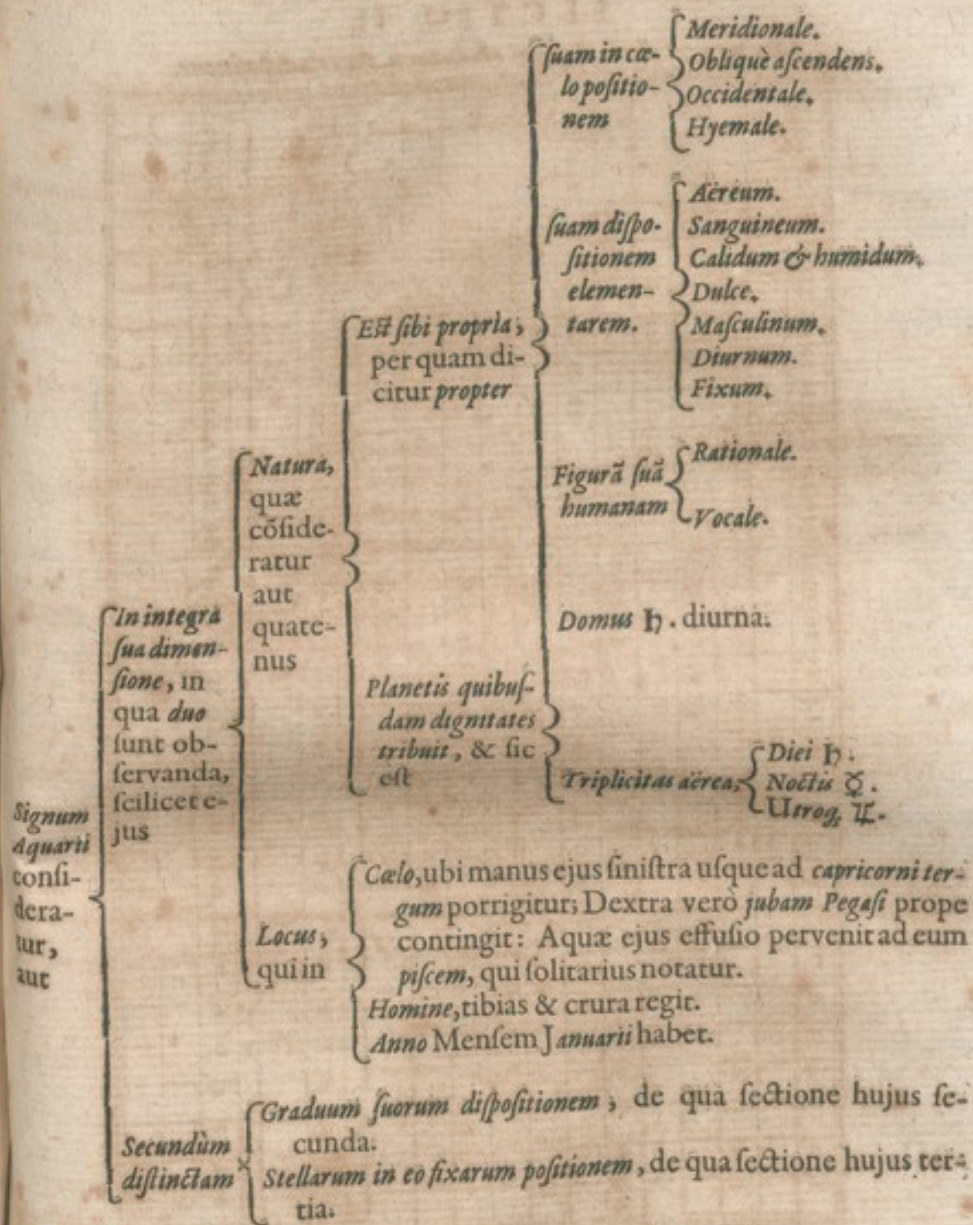 Signum
Aquarii
consi-
dera-
tur,
aut
In integrâ
sua dimen-
sione, in
qua duo
sunt ob-
servanda,
scilicet e-
jus
Naturâ,
quæ
cõside-
ratur
aut
quate-
nus
Est sibi propria;
per quam di-
citur propter
suam in cœ-
lo positio-
nem
Meridionale.
Obliquè ascendens.
Occidentale.
Hyemale.
suam dispo-
sitionem
elemen-
tarem.
Aëreum.
Sanguineum.
Calidum & humidum.
Dulce.
Masculinum.
Diurnum.
Fixum.
Figurã suã
humanam
Rationale.
Vocale.
Planetis quibus-
dam dignitates
tribuit, & sic
est
Domus ♄. diurna.
Triplicitas aërea,
Diei ♄.
Noctis ☿.
Utroq; ♃.
Locus;
qui in
Cælo, ubi manus ejus sinistra usque ad capricorni ter-
gum porrigitur; Dextra verò jubam Pegasi prope
contingit: Aquæ ejus effusio pervenit ad eum
piscem, qui solitarius notatur.
Homine, tibias & crura regit.
Anno Mensem Januarii habet.
Secundùm
distinctam
Graduum suorum dispositionem; de qua sectione hujus se-
cunda.
Stellarum in eo fixarum positionem, de qua sectione hujus ter-
tia.